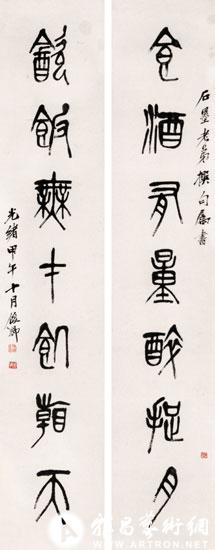 石墨老弟撰句屬書
食酒有量醉捉月
飲飯無才飢朝天
光緒甲午十月俊卿
雅昌藝術網
WWW.ARTRON.NET